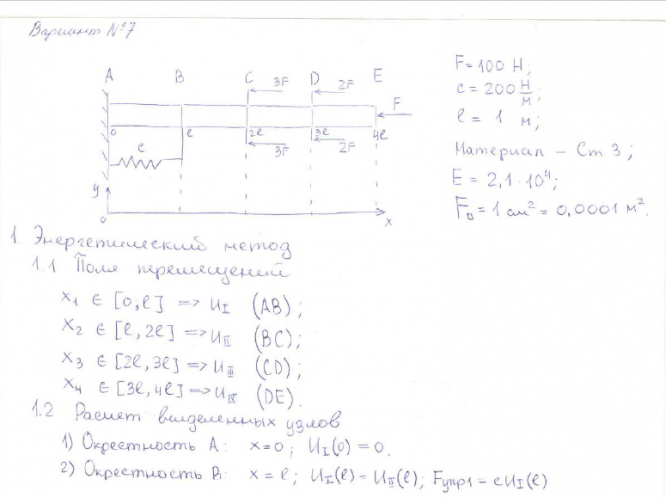 Вариант №7
A B C D E
3F 2F
F
0 l 2l 3l 4l
c 3F 2F
y
0 x
F = 100 Н;
c = 200 Н/м;
l = 1 м;
Материал – Ст 3;
E = 2,1·10⁴;
F₀ = 1 см² = 0,0001 м².
1. Энергетический метод
1.1 Поля перемещений
x₁ ∈ [0, l] => u_I (AB);
x₂ ∈ [l, 2l] => u_II (BC);
x₃ ∈ [2l, 3l] => u_III (CD);
x₄ ∈ [3l, 4l] => u_IV (DE).
1.2 Расчет выделенных узлов
1) Окрестность A: x=0; u_I(0) = 0.
2) Окрестность B: x = l; u_I(l) = u_II(l); Fупр1 = cu_I(l)